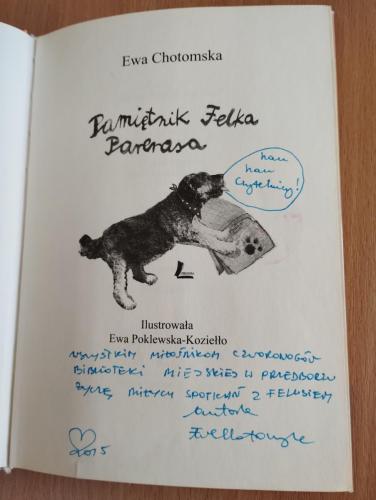 Ewa Chotomska
Pamiętnik Felka
Parerasa
hau
hau
Czytelnicy!
Ilustrowała
Ewa Poklewska-Koziełło
WSZYSTKIM MIŁOŚNIKOM CZWORONOGÓW
BIBLIOTEKI MIEJSKIEJ W PRZEDBORZU
ŻYCZĘ MIŁYCH SPOTKAŃ Z FELUSIEM
autorka
EwaChotomska
2015